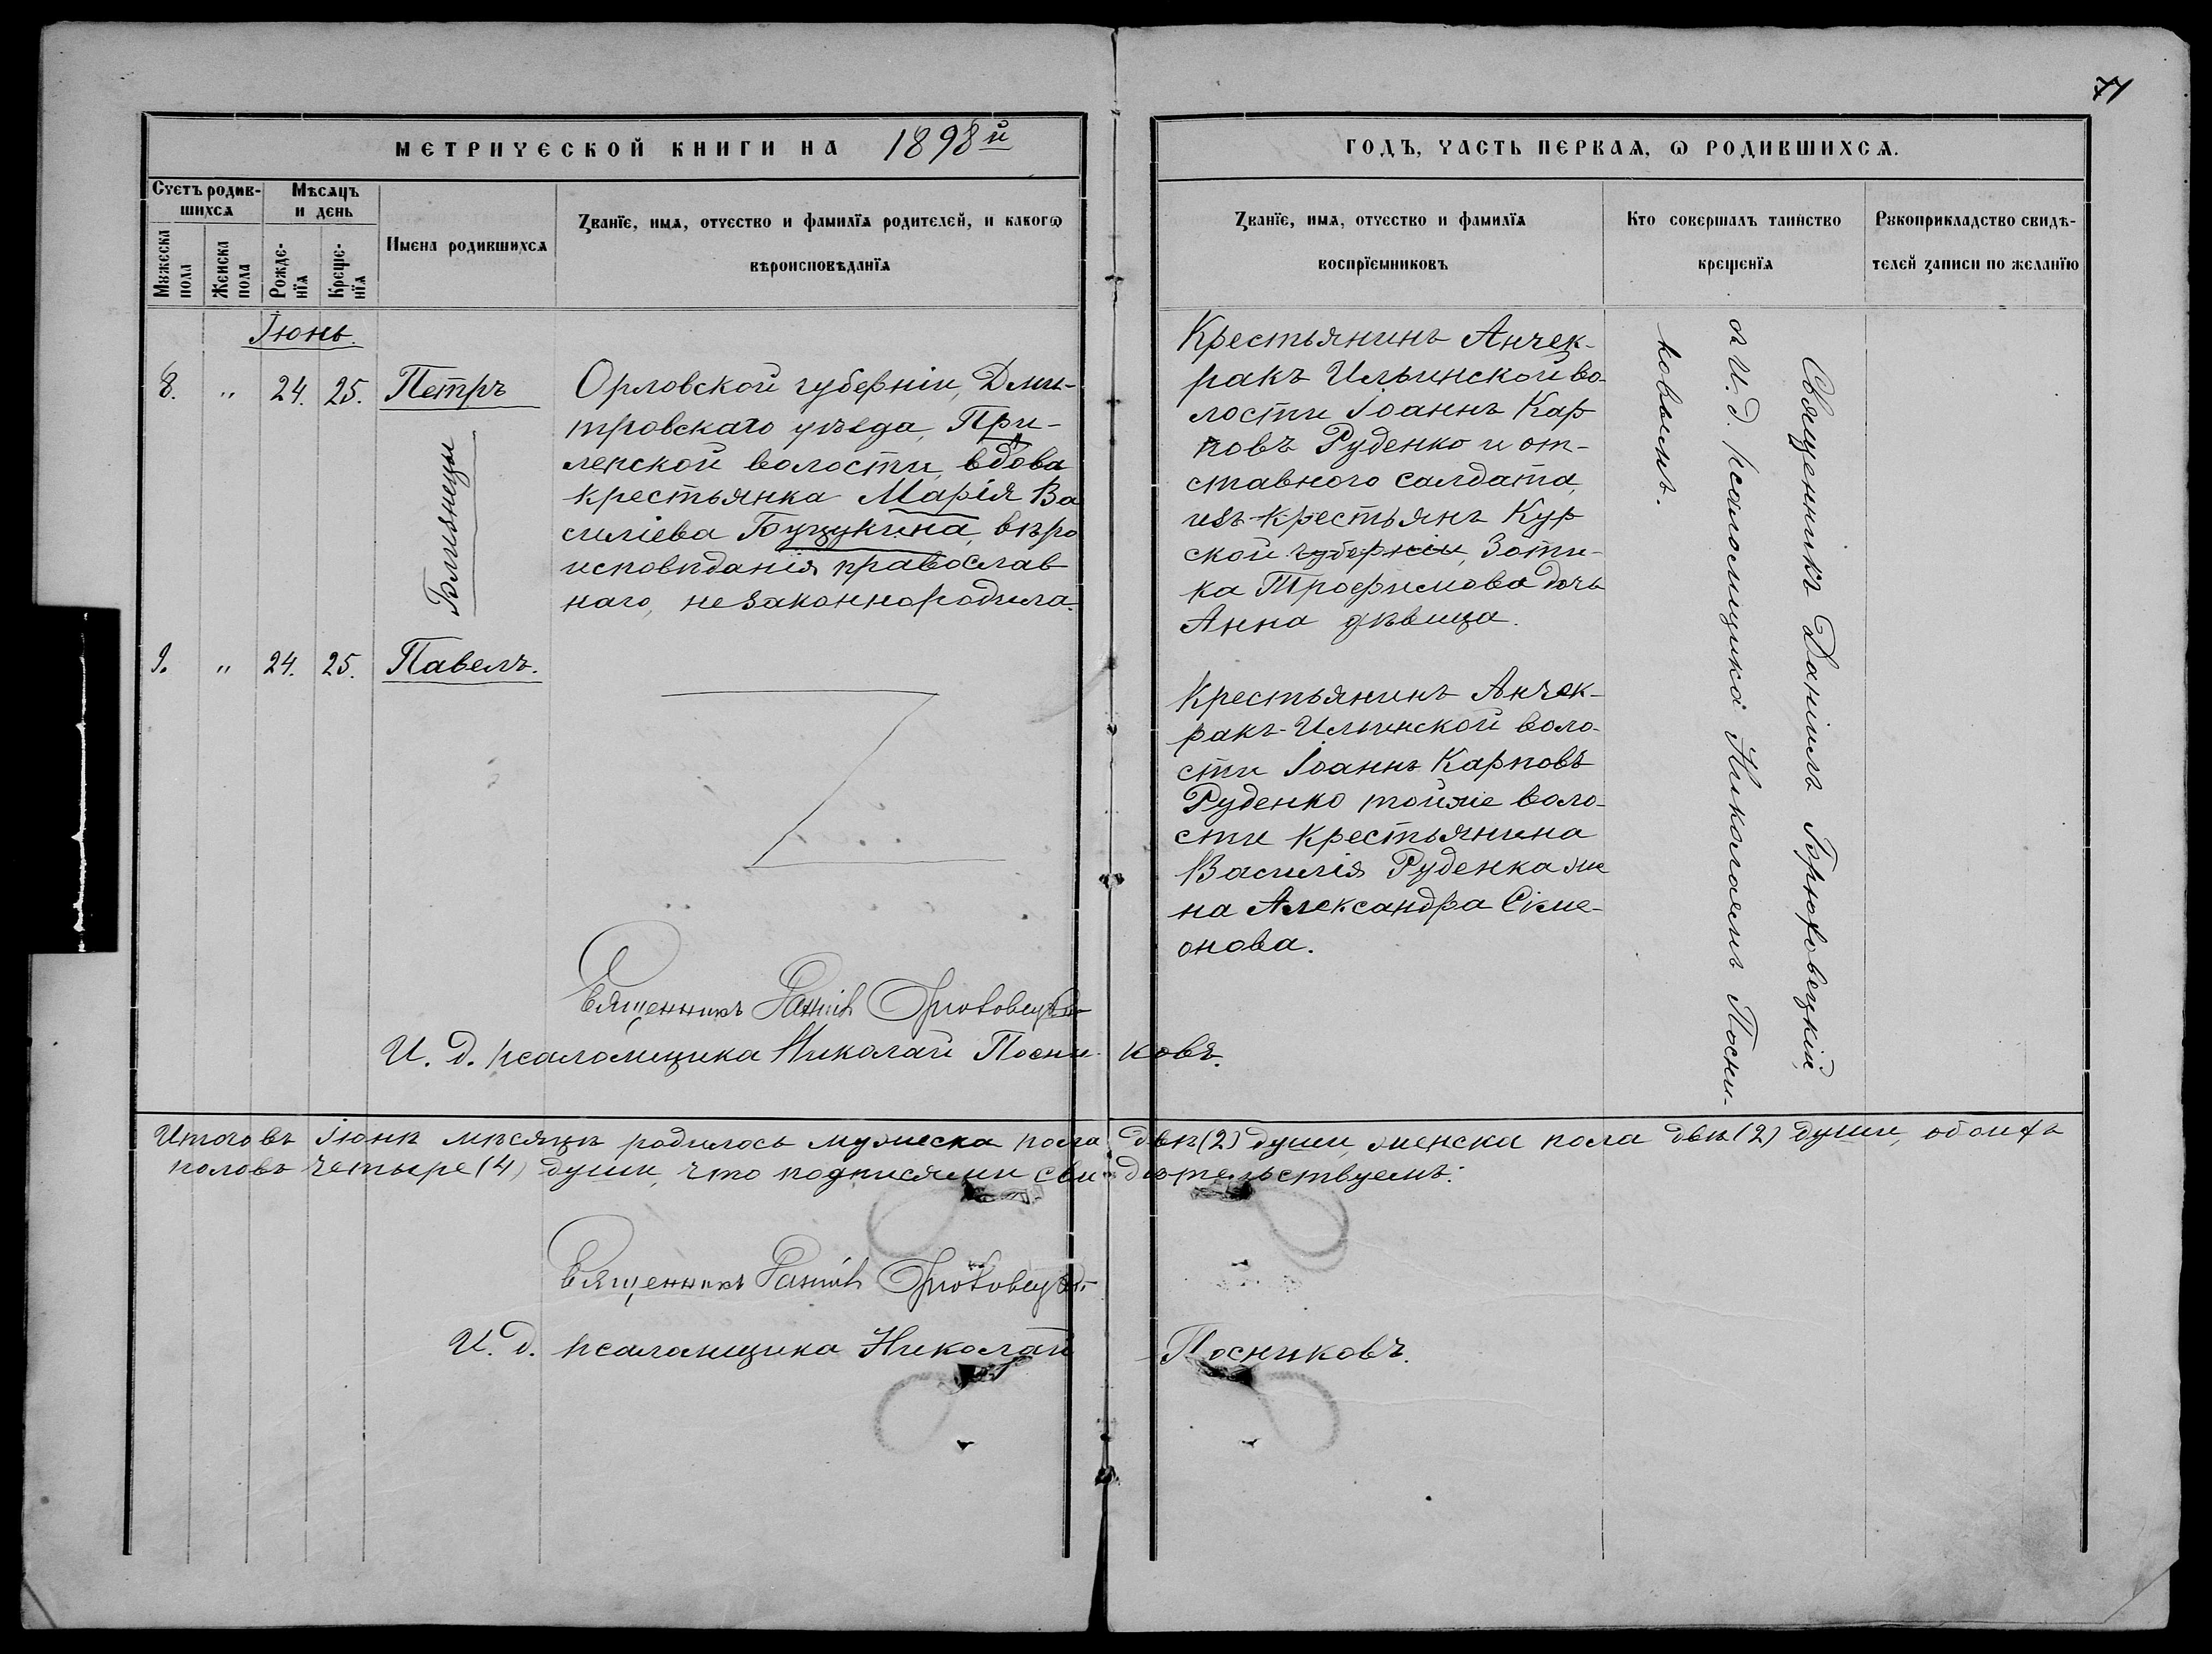 71
МЕТРИЧЕСКОЙ КНИГИ НА 1898й
ГОДЪ, ЧАСТЬ ПЕРВАЯ, Ѡ РОДИВШИХСЯ.
Счетъ родив-
шихся
Мѣсяцъ
и день
Мꙋжеска
пола
Женска
пола
Рожде-
нїя
Креще-
нїя
Имена родившихся
Званїе, имя, отчество и фамилїя родителей, и какогѡ
вѣроисповѣданїя
Званїе, имя, отчество и фамилїя
воспрїемниковъ
Кто совершалъ таинство
крещенїя
Рꙋкоприкладство свидѣ-
телей записи по желанїю
Іюнь.
8. " 24. 25. Петръ
Близнецы
Орловской губерніи, Дми-
тровскаго уѣзда, При-
лепской волости, вдова
крестьянка Марія Ва
силіева Бузукина, вѣро
исповѣданія православ
наго, незаконнородила.
Крестьянинъ Анчек-
ракъ Ильинской во-
лости Іоаннъ Кар
повъ Руденко и от-
ставного салдата,
изъ крестьянъ Кур
ской губерніи, Зоти-
ка Трофимова дочь
Анна дѣвица.
9. " 24. 25. Павелъ.
Крестьянинъ Анчек-
ракъ-Ильинской воло-
сти Іоаннъ Карповъ
Руденко тойже воло-
сти крестьянина
Василія Руденка же
на Александра Сіме-
онова.
Священникъ Даніилъ Горюховецкій
съ И. д. псаломщика Николаемъ Посни-
ковымъ.
Священникъ Даніилъ
И. д. псаломщика Николай Посни-ковъ.
Итого въ Іюнѣ мѣсяцѣ родилось мужеска пола двѣ (2) души, женска пола двѣ (2) души, обоихъ
половъ четыре (4) души, что подписями сви-дѣтельствуемъ:
Священникъ Даніилъ
И. д. псаломщика Николай Посниковъ.